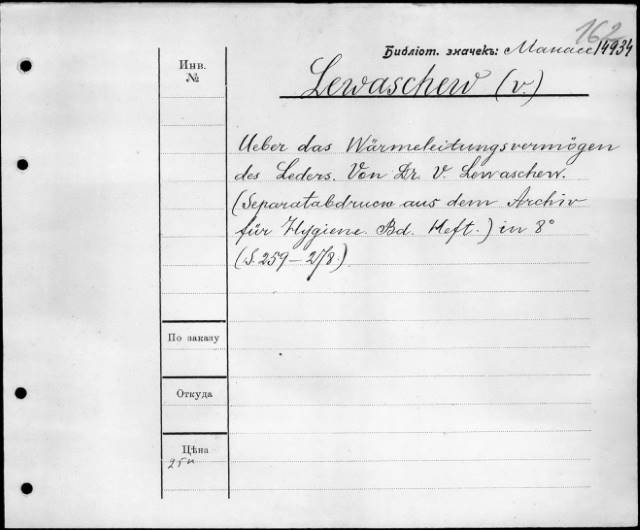 162
Библіот. значекъ: Манасс 14934
Инв. №
Lewaschew (v.)
Ueber das Wärmeleitungsvermögen
des Leders. Von Dr. V. Lewaschew.
(Separatabdruck aus dem Archiv
für Hygiene. Bd. Heft.) in 8°
(S. 259–278.)
По заказу
Откуда
Цѣна
25к